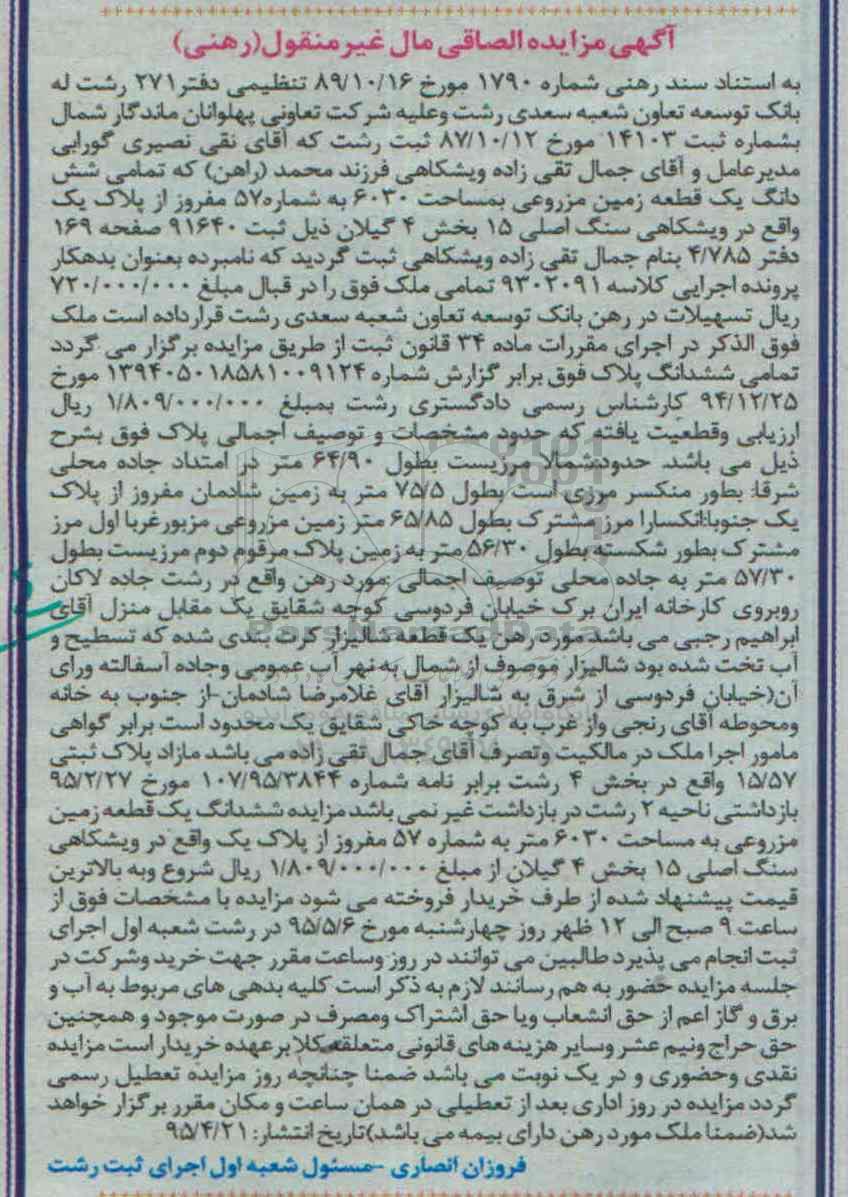 آگهی مزایده الصاقی مال غیرمنقول(رهنی)
به استناد سند رهنی شماره ۱۷۹۰ مورخ ۸۹/۱۰/۱۶ تنظیمی دفتر۲۷۱ رشت له
بانک توسعه تعاون شعبه سعدی رشت وعلیه شرکت تعاونی پهلوانان ماندگار شمال
بشماره ثبت ۱۴۱۰۳ مورخ ۸۷/۱۰/۱۲ ثبت رشت که آقای نقی نصیری گورابی
مدیرعامل و آقای جمال تقی زاده ویشکاهی فرزند محمد (راهن) که تمامی شش
دانگ یک قطعه زمین مزروعی بمساحت ۶۰۳۰ به شماره۵۷ مفروز از پلاک یک
واقع در ویشکاهی سنگ اصلی ۱۵ بخش ۴ گیلان ذیل ثبت ۹۱۶۴۰ صفحه ۱۶۹
دفتر ۴/۷۸۵ بنام جمال تقی زاده ویشکاهی ثبت گردید که نامبرده بعنوان بدهکار
پرونده اجرایی کلاسه ۹۳۰۲۰۹۱ تمامی ملک فوق را در قبال مبلغ ۷۲۰/۰۰۰/۰۰۰
ریال تسهیلات در رهن بانک توسعه تعاون شعبه سعدی رشت قرارداده است ملک
فوق الذکر در اجرای مقررات ماده ۳۴ قانون ثبت از طریق مزایده برگزار می گردد
تمامی ششدانگ پلاک فوق برابر گزارش شماره ۱۳۹۴۰۵۰۱۸۵۸۱۰۰۹۱۲۴ مورخ
۹۴/۱۲/۲۵ کارشناس رسمی دادگستری رشت بمبلغ ۱/۸۰۹/۰۰۰/۰۰۰ ریال
ارزیابی وقطعیت یافته که حدود مشخصات و توصیف اجمالی پلاک فوق بشرح
ذیل می باشد. حدود:شمالا مرزیست بطول ۶۴/۹۰ متر در امتداد جاده محلی
شرقا: بطور منکسر مرزی است بطول ۷۵/۵ متر به زمین شادمان مفروز از پلاک
یک جنوبا:انکسارا مرز مشترک بطول ۶۵/۸۵ متر زمین مزروعی مزبورغربا اول مرز
مشترک بطور شکسته بطول ۵۶/۳۰ متر به زمین پلاک مرقوم دوم مرزیست بطول
۵۷/۳۰ متر به جاده محلی توصیف اجمالی :مورد رهن واقع در رشت جاده لاکان
روبروی کارخانه ایران برک خیابان فردوسی کوچه شقایق یک مقابل منزل آقای
ابراهیم رجبی می باشد مورد رهن یک قطعه شالیزار کرت بندی شده که تسطیح و
آب تخت شده بود شالیزار موصوف از شمال به نهر آب عمومی وجاده آسفالته ورای
آن(خیابان فردوسی از شرق به شالیزار آقای غلامرضا شادمان-از جنوب به خانه
ومحوطه آقای رنجی واز غرب به کوچه خاکی شقایق یک محدود است برابر گواهی
مامور اجرا ملک در مالکیت وتصرف آقای جمال تقی زاده می باشد مازاد پلاک ثبتی
۱۵/۵۷ واقع در بخش ۴ رشت برابر نامه شماره ۱۰۷/۹۵/۳۸۴۴ مورخ ۹۵/۲/۲۷
بازداشتی ناحیه ۲ رشت در بازداشت غیر نمی باشد مزایده ششدانگ یک قطعه زمین
مزروعی به مساحت ۶۰۳۰ متر به شماره ۵۷ مفروز از پلاک یک واقع در ویشکاهی
سنگ اصلی ۱۵ بخش ۴ گیلان از مبلغ ۱/۸۰۹/۰۰۰/۰۰۰ ریال شروع وبه بالاترین
قیمت پیشنهاد شده از طرف خریدار فروخته می شود مزایده با مشخصات فوق از
ساعت ۹ صبح الی ۱۲ ظهر روز چهارشنبه مورخ ۹۵/۵/۶ در رشت شعبه اول اجرای
ثبت انجام می پذیرد طالبین می توانند در روز وساعت مقرر جهت خرید وشرکت در
جلسه مزایده حضور به هم رسانند لازم به ذکر است کلیه بدهی های مربوط به آب و
برق و گاز اعم از حق انشعاب ویا حق اشتراک ومصرف در صورت موجود و همچنین
حق حراج ونیم عشر وسایر هزینه های قانونی متعلقه کلا برعهده خریدار است مزایده
نقدی وحضوری و در یک نوبت می باشد ضمنا چنانچه روز مزایده تعطیل رسمی
گردد مزایده در روز اداری بعد از تعطیلی در همان ساعت و مکان مقرر برگزار خواهد
شد(ضمنا ملک مورد رهن دارای بیمه می باشد)تاریخ انتشار: ۹۵/۴/۲۱
فروزان انصاری -مسئول شعبه اول اجرای ثبت رشت